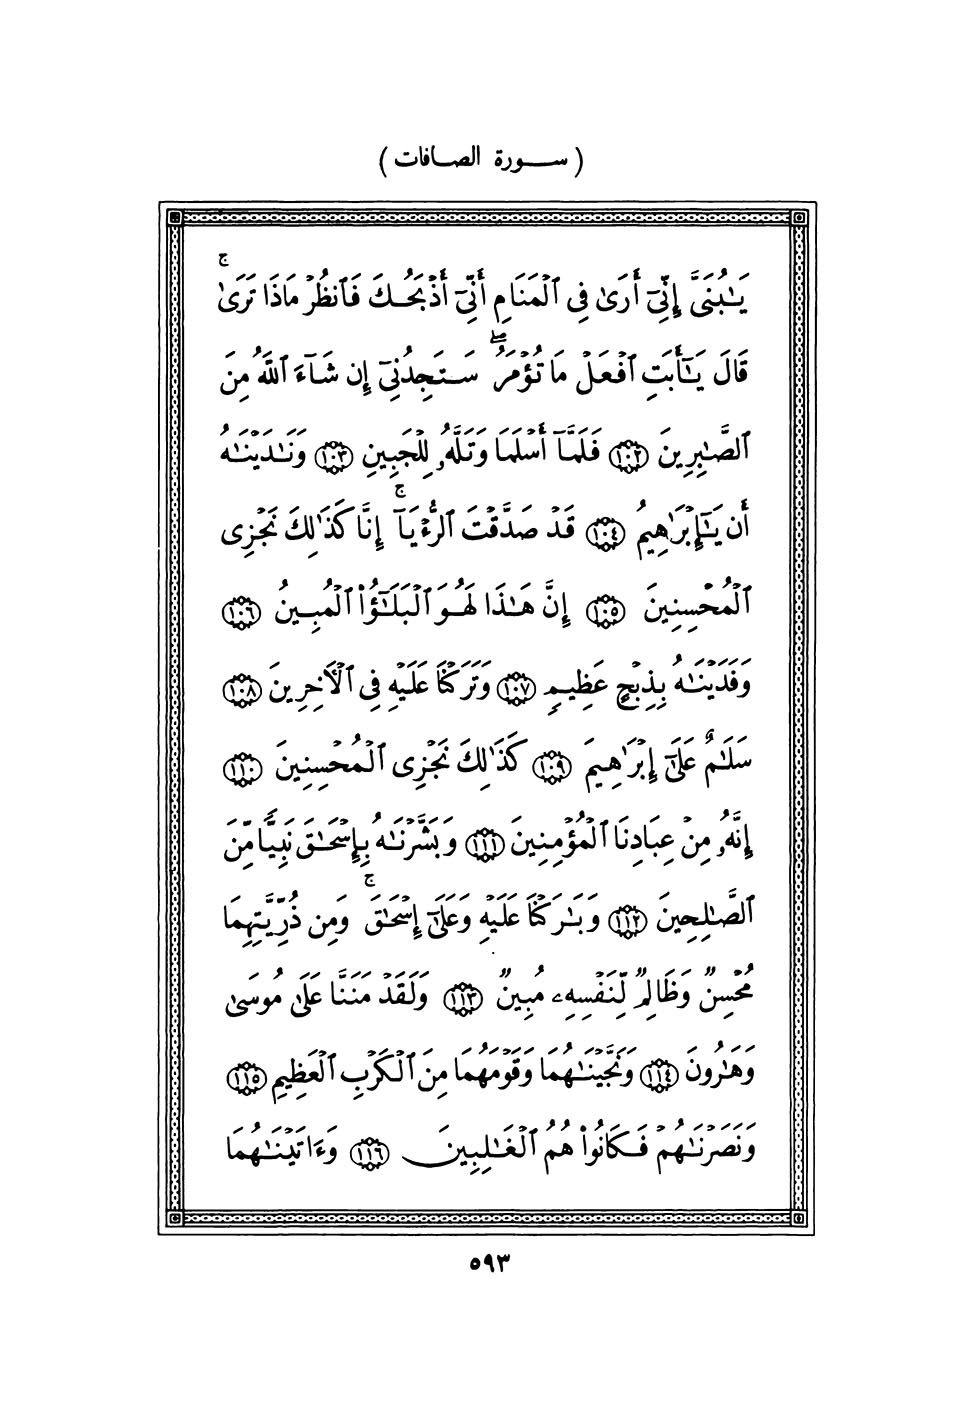 ( سـورة الصـافات )
يَـٰبُنَىَّ إِنِّىٓ أَرَىٰ فِى ٱلْمَنَامِ أَنِّىٓ أَذْبَحُكَ فَٱنظُرْ مَاذَا تَرَىٰۚ
قَالَ يَـٰٓأَبَتِ ٱفْعَلْ مَا تُؤْمَرُۖ سَتَجِدُنِىٓ إِن شَآءَ ٱللَّهُ مِنَ
ٱلصَّـٰبِرِينَ ١٠٢ فَلَمَّآ أَسْلَمَا وَتَلَّهُۥ لِلْجَبِينِ ١٠٣ وَنَـٰدَيْنَـٰهُ
أَن يَـٰٓإِبْرَٰهِيمُ ١٠٤ قَدْ صَدَّقْتَ ٱلرُّءْيَآۚ إِنَّا كَذَٰلِكَ نَجْزِى
ٱلْمُحْسِنِينَ ١٠٥ إِنَّ هَـٰذَا لَهُوَ ٱلْبَلَـٰٓؤُا۟ ٱلْمُبِينُ ١٠٦
وَفَدَيْنَـٰهُ بِذِبْحٍ عَظِيمٍ ١٠٧ وَتَرَكْنَا عَلَيْهِ فِى ٱلْـَٔاخِرِينَ ١٠٨
سَلَـٰمٌ عَلَىٰٓ إِبْرَٰهِيمَ ١٠٩ كَذَٰلِكَ نَجْزِى ٱلْمُحْسِنِينَ ١١٠
إِنَّهُۥ مِنْ عِبَادِنَا ٱلْمُؤْمِنِينَ ١١١ وَبَشَّرْنَـٰهُ بِإِسْحَـٰقَ نَبِيًّا مِّنَ
ٱلصَّـٰلِحِينَ ١١٢ وَبَـٰرَكْنَا عَلَيْهِ وَعَلَىٰٓ إِسْحَـٰقَۚ وَمِن ذُرِّيَّتِهِمَا
مُحْسِنٌ وَظَالِمٌ لِّنَفْسِهِۦ مُبِينٌ ١١٣ وَلَقَدْ مَنَنَّا عَلَىٰ مُوسَىٰ
وَهَـٰرُونَ ١١٤ وَنَجَّيْنَـٰهُمَا وَقَوْمَهُمَا مِنَ ٱلْكَرْبِ ٱلْعَظِيمِ ١١٥
وَنَصَرْنَـٰهُمْ فَكَانُوا۟ هُمُ ٱلْغَـٰلِبِينَ ١١٦ وَءَاتَيْنَـٰهُمَا
٥٩٣